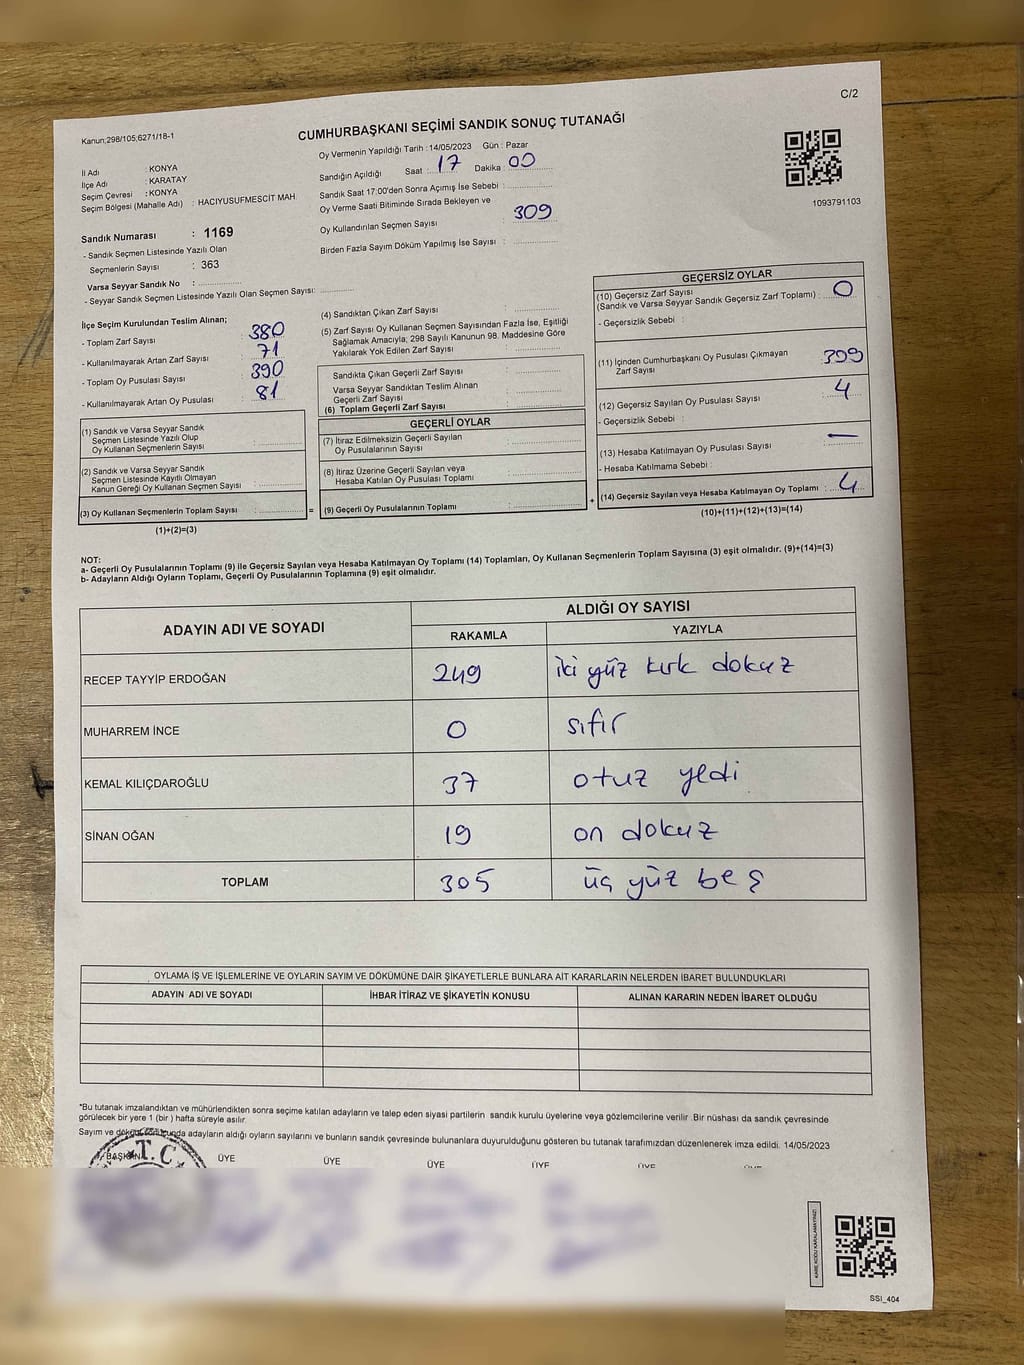 C/2
Kanun;298/105;6271/18-1
CUMHURBAŞKANI SEÇİMİ SANDIK SONUÇ TUTANAĞI
İl Adı : KONYA
İlçe Adı : KARATAY
Seçim Çevresi : KONYA
Seçim Bölgesi (Mahalle Adı) : HACIYUSUFMESCİT MAH
Oy Vermenin Yapıldığı Tarih : 14/05/2023 Gün : Pazar
Sandığın Açıldığı Saat : 17 Dakika : 00
Sandık Saat 17:00'den Sonra Açımış İse Sebebi :
Oy Verme Saati Bitiminde Sırada Bekleyen ve
Oy Kullandırılan Seçmen Sayısı 309
Birden Fazla Sayım Döküm Yapılmış İse Sayısı :
1093791103
Sandık Numarası : 1169
- Sandık Seçmen Listesinde Yazılı Olan
Seçmenlerin Sayısı : 363
Varsa Seyyar Sandık No :
- Seyyar Sandık Seçmen Listesinde Yazılı Olan Seçmen Sayısı:
İlçe Seçim Kurulundan Teslim Alınan;
- Toplam Zarf Sayısı 380
- Kullanılmayarak Artan Zarf Sayısı 71
- Toplam Oy Pusulası Sayısı 390
- Kullanılmayarak Artan Oy Pusulası 81
(1) Sandık ve Varsa Seyyar Sandık
Seçmen Listesinde Yazılı Olup
Oy Kullanan Seçmenlerin Sayısı :
(2) Sandık ve Varsa Seyyar Sandık
Seçmen Listesinde Kayıtlı Olmayan
Kanun Gereği Oy Kullanan Seçmen Sayısı :
(3) Oy Kullanan Seçmenlerin Toplam Sayısı : =
(1)+(2)=(3)
(4) Sandıktan Çıkan Zarf Sayısı :
(5) Zarf Sayısı Oy Kullanan Seçmen Sayısından Fazla İse, Eşitliği
Sağlamak Amacıyla; 298 Sayılı Kanunun 98. Maddesine Göre
Yakılarak Yok Edilen Zarf Sayısı :
Sandıkta Çıkan Geçerli Zarf Sayısı :
Varsa Seyyar Sandıktan Teslim Alınan
Geçerli Zarf Sayısı :
(6) Toplam Geçerli Zarf Sayısı :
GEÇERLİ OYLAR
(7) İtiraz Edilmeksizin Geçerli Sayılan
Oy Pusulalarının Sayısı :
(8) İtiraz Üzerine Geçerli Sayılan veya
Hesaba Katılan Oy Pusulası Toplamı :
(9) Geçerli Oy Pusulalarının Toplamı : +
GEÇERSİZ OYLAR
(10) Geçersiz Zarf Sayısı
(Sandık ve Varsa Seyyar Sandık Geçersiz Zarf Toplamı) : 0
- Geçersizlik Sebebi :
(11) İçinden Cumhurbaşkanı Oy Pusulası Çıkmayan
Zarf Sayısı
(12) Geçersiz Sayılan Oy Pusulası Sayısı : 4
- Geçersizlik Sebebi :
(13) Hesaba Katılmayan Oy Pusulası Sayısı : —
- Hesaba Katılmama Sebebi :
(14) Geçersiz Sayılan veya Hesaba Katılmayan Oy Toplamı : 4
(10)+(11)+(12)+(13)=(14)
NOT:
a- Geçerli Oy Pusulalarının Toplamı (9) ile Geçersiz Sayılan veya Hesaba Katılmayan Oy Toplamı (14) Toplamları, Oy Kullanan Seçmenlerin Toplam Sayısına (3) eşit olmalıdır. (9)+(14)=(3)
b- Adayların Aldığı Oyların Toplamı, Geçerli Oy Pusulalarının Toplamına (9) eşit olmalıdır.
ADAYIN ADI VE SOYADI ALDIĞI OY SAYISI
RAKAMLA YAZIYLA
RECEP TAYYİP ERDOĞAN 249 iki yüz kırk dokuz
MUHARREM İNCE 0 sıfır
KEMAL KILIÇDAROĞLU 37 otuz yedi
SİNAN OĞAN 19 on dokuz
TOPLAM 305 üç yüz beş
OYLAMA İŞ VE İŞLEMLERİNE VE OYLARIN SAYIM VE DÖKÜMÜNE DAİR ŞİKAYETLERLE BUNLARA AİT KARARLARIN NELERDEN İBARET BULUNDUKLARI
ADAYIN ADI VE SOYADI İHBAR İTİRAZ VE ŞİKAYETİN KONUSU ALINAN KARARIN NEDEN İBARET OLDUĞU
*Bu tutanak imzalandıktan ve mühürlendikten sonra seçime katılan adayların ve talep eden siyasi partilerin sandık kurulu üyelerine veya gözlemcilerine verilir .Bir nüshası da sandık çevresinde
görülecek bir yere 1 (bir ) hafta süreyle asılır.
Sayım ve adayların aldığı oyların sayılarını ve bunların sandık çevresinde bulunanlara duyurulduğunu gösteren bu tutanak tarafımızdan düzenlenerek imza edildi. 14/05/2023
BAŞKAN T.C ÜYE ÜYE ÜYE ÜYE ÜYE
SSI_404